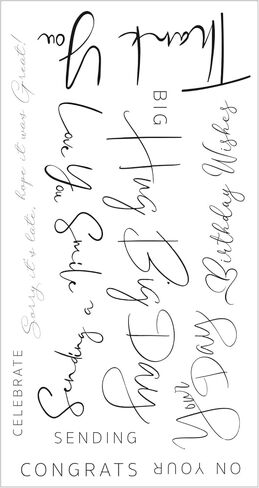 Thank
You
BIG
Sorry it's late, hope it was Great!
Love You
Sending a Smile
Hug
Big Day
Birthday Wishes
Your Day
CELEBRATE
SENDING
CONGRATS
ON YOUR